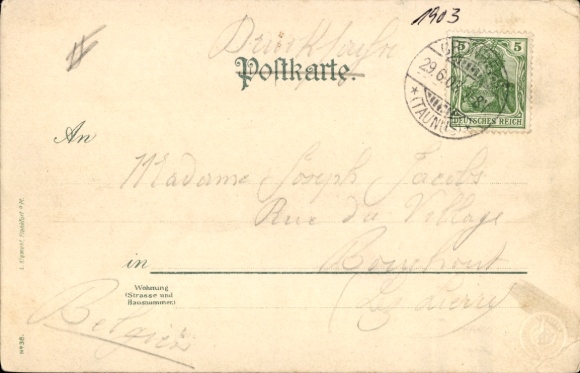 1903
Drucksache
Postkarte.
5 5
DEUTSCHES REICH
29.6.03
(TAUNUS)
An
Madame Joseph Jacobs
Rue du Village
in Bouchout
(Lz Lierre)
Wohnung
(Strasse und
Hausnummer)
Belgien
No 38.